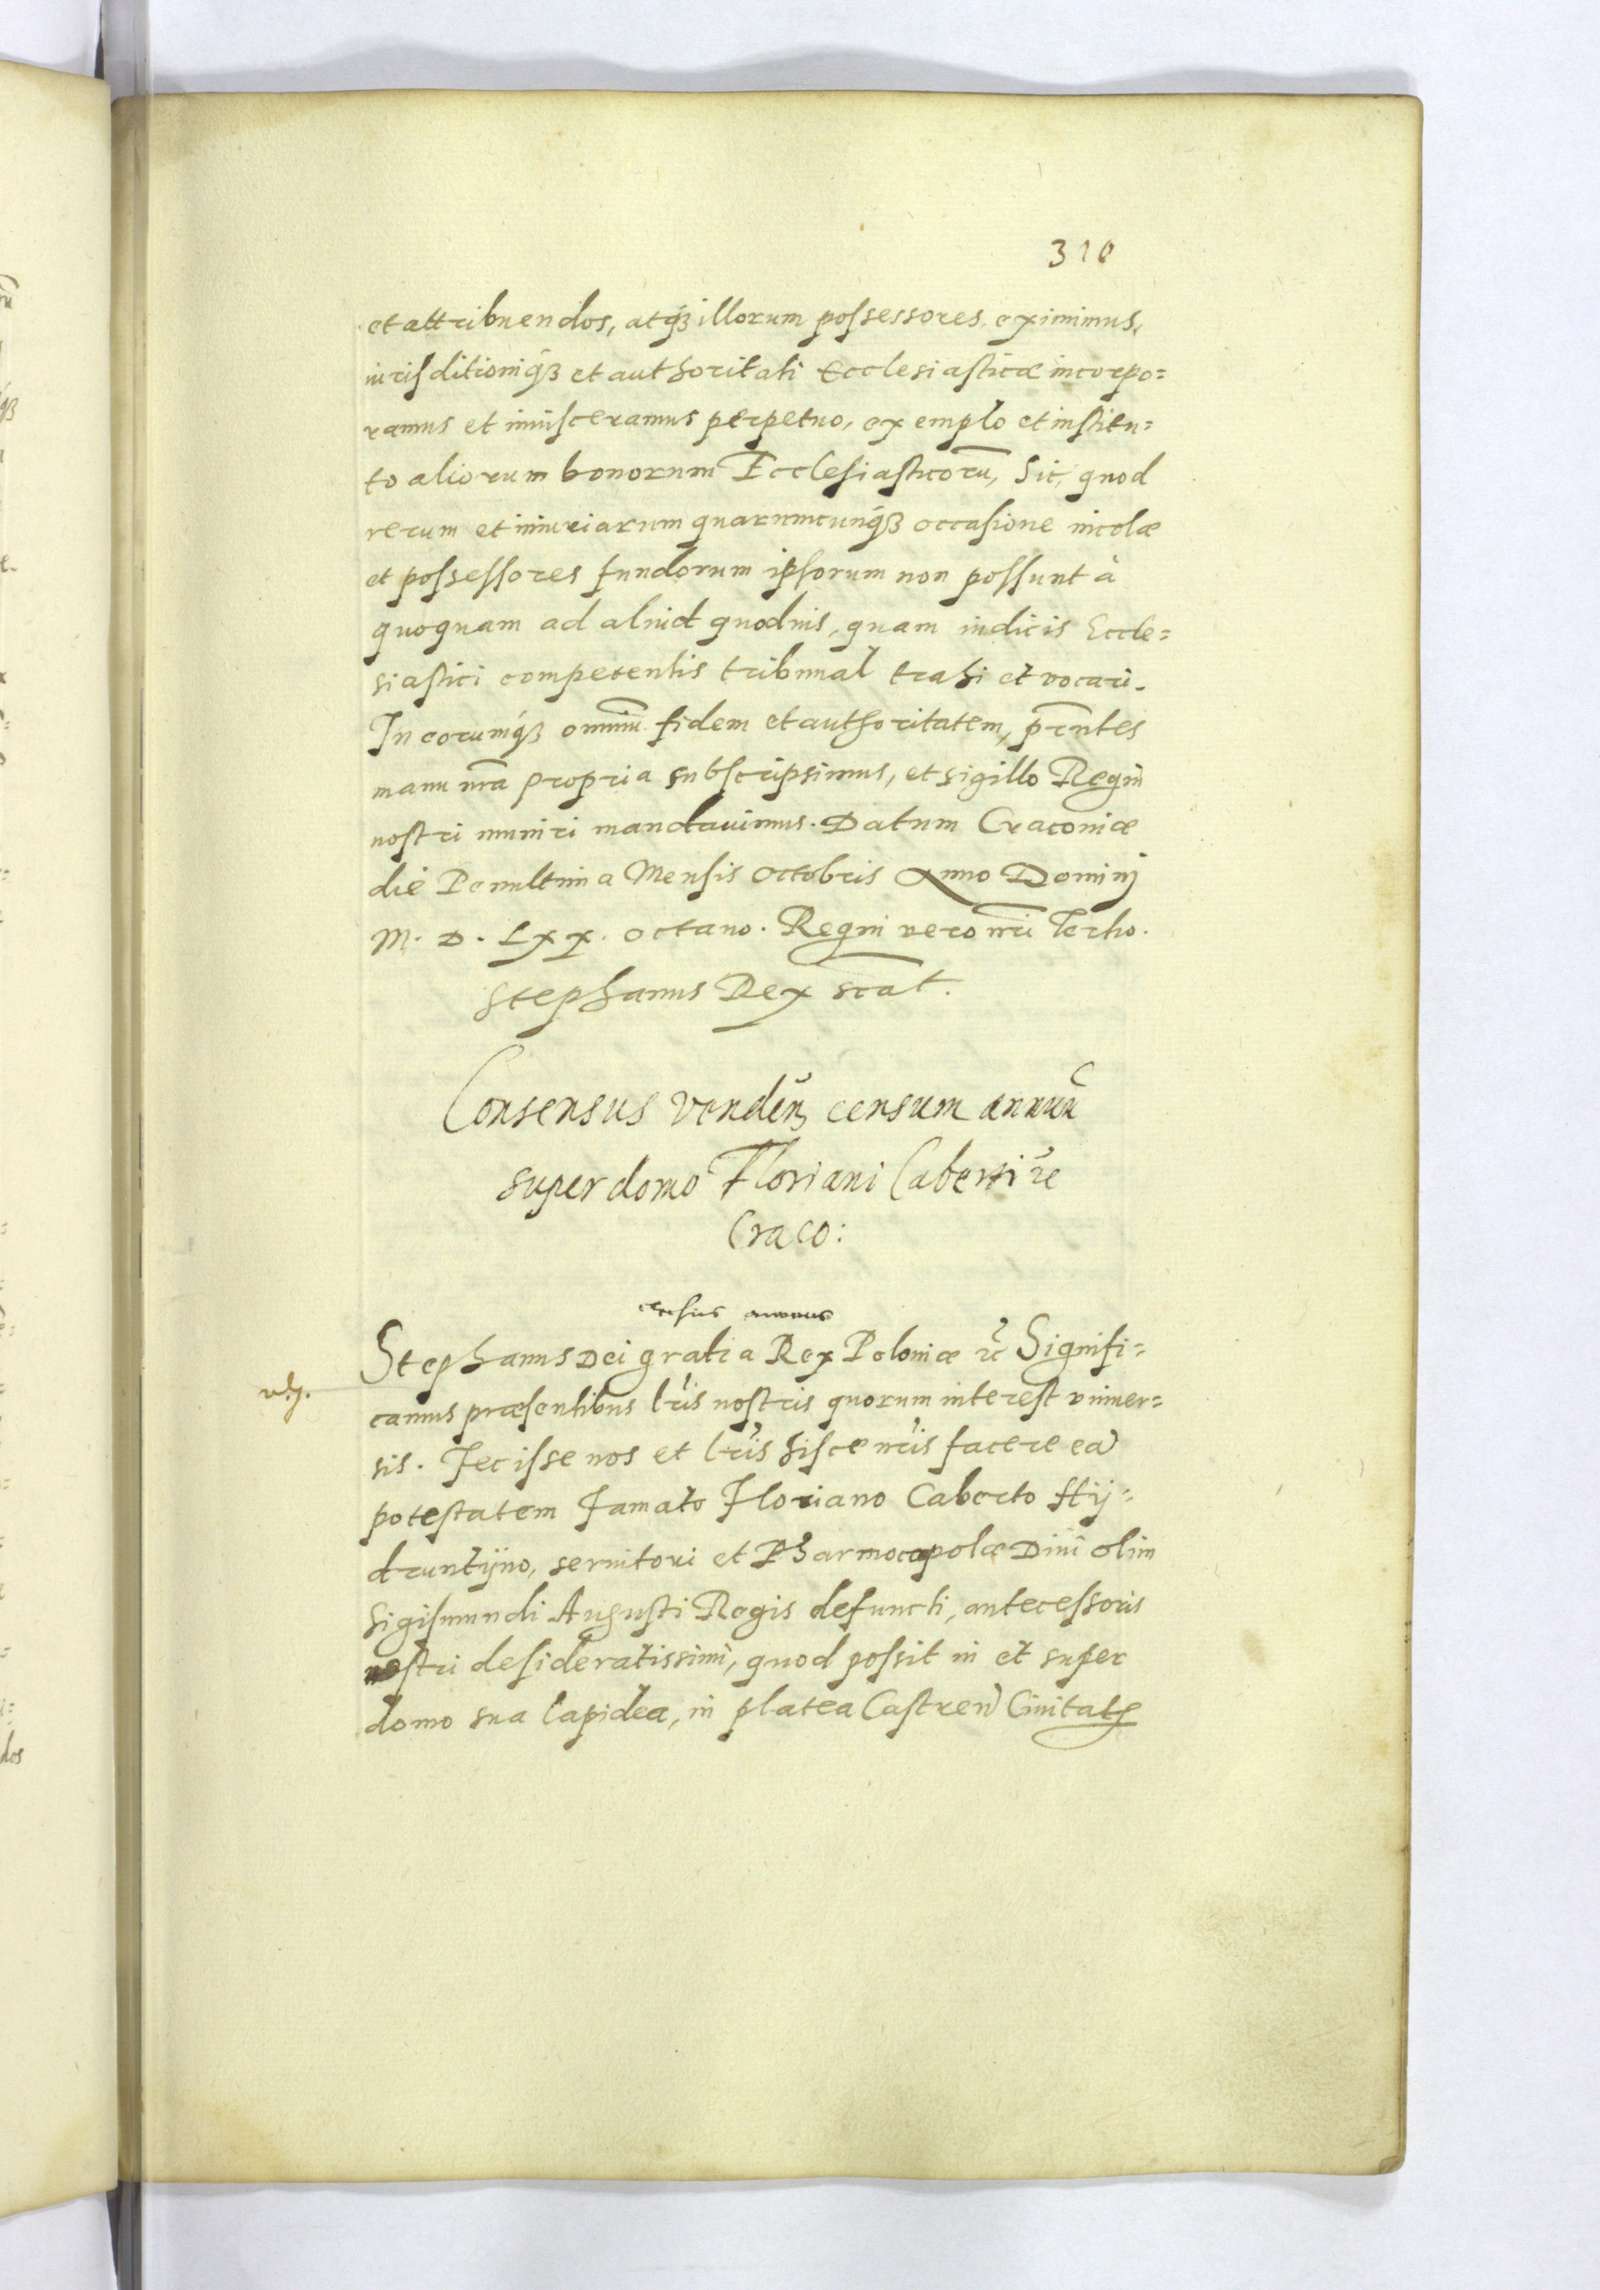 310
et attribuendos, atq́ꝫ illorum possessores eximimus,
iurisditioniq́ꝫ et authoritati Ecclesiasticæ incorpo=
ramus et inuisceramus perpetuo, exemplo et institu=
to aliorum bonorum Ecclesiasticorū, Sic, quod
rerum et iniuriarum quarumcunq́ꝫ occasione incolæ
et possessores fundorum ipsorum non possunt à
quoquam ad aliud quoduis, quam iudicis Eccle=
siastici competentis tribunal trahi et vocari.
In eorumq́ꝫ omniū fidem et authoritatem, prn̄tes
manu nr̄a propria subscripsimus, et sigillo Regni
nostri muniri mandauimus. Datum Cracouiæ
die Penultima Mensis Octobris Anno Dominj
M. D. Lxx. octauo. Regni vero nr̄i Tertio.
Stephanus Rex scat.
Consensus venden̄ censum annuū
super domo Floriani Caberti ꝛc
Craco:
census annuus
Stephanus Dei gratia Rex Poloniæ ꝛc̄ Signifi=
camus præsentibus lr̄is nostris quorum interest vniuer=
sis. Fecisse nos et lr̄is hisce nr̄is facere eā
potestatem Famato Floriano Caberto Hij=
druntijno, seruitori et Pharmocopolæ Diui olim
Sigismundi Augusti Regis defuncti, antecessoris
nostri desideratissimi, quod possit in et super
domo sua lapidea, in platea Castren̄ Ciuitatꝭ